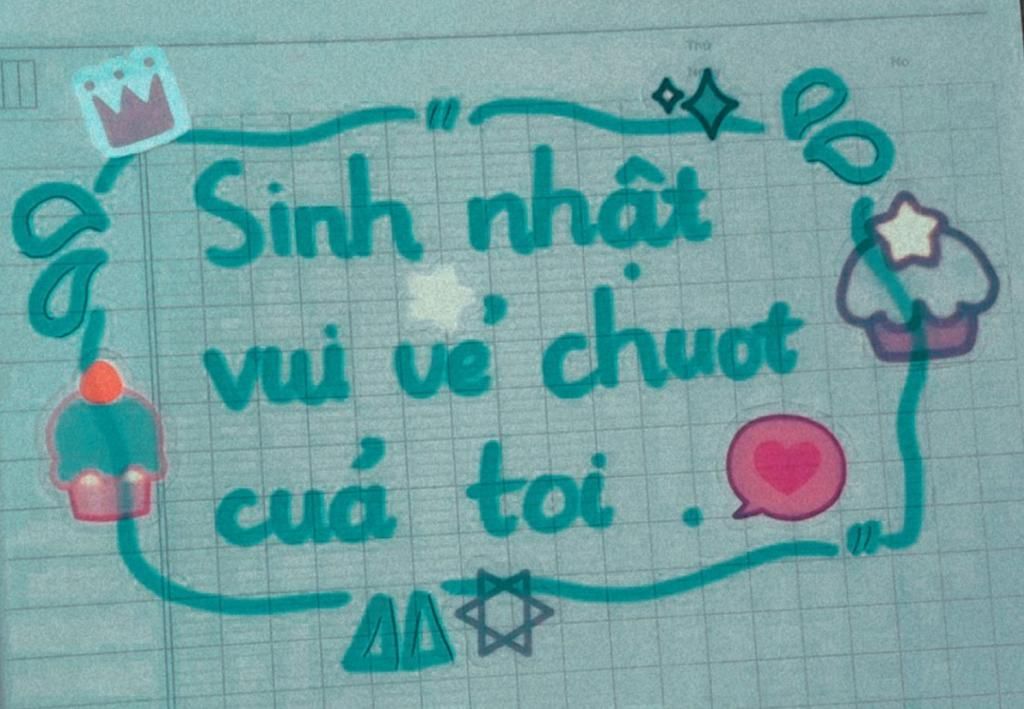 Thứ
No
Sinh nhật
vui vẻ chuot
cuả toi .